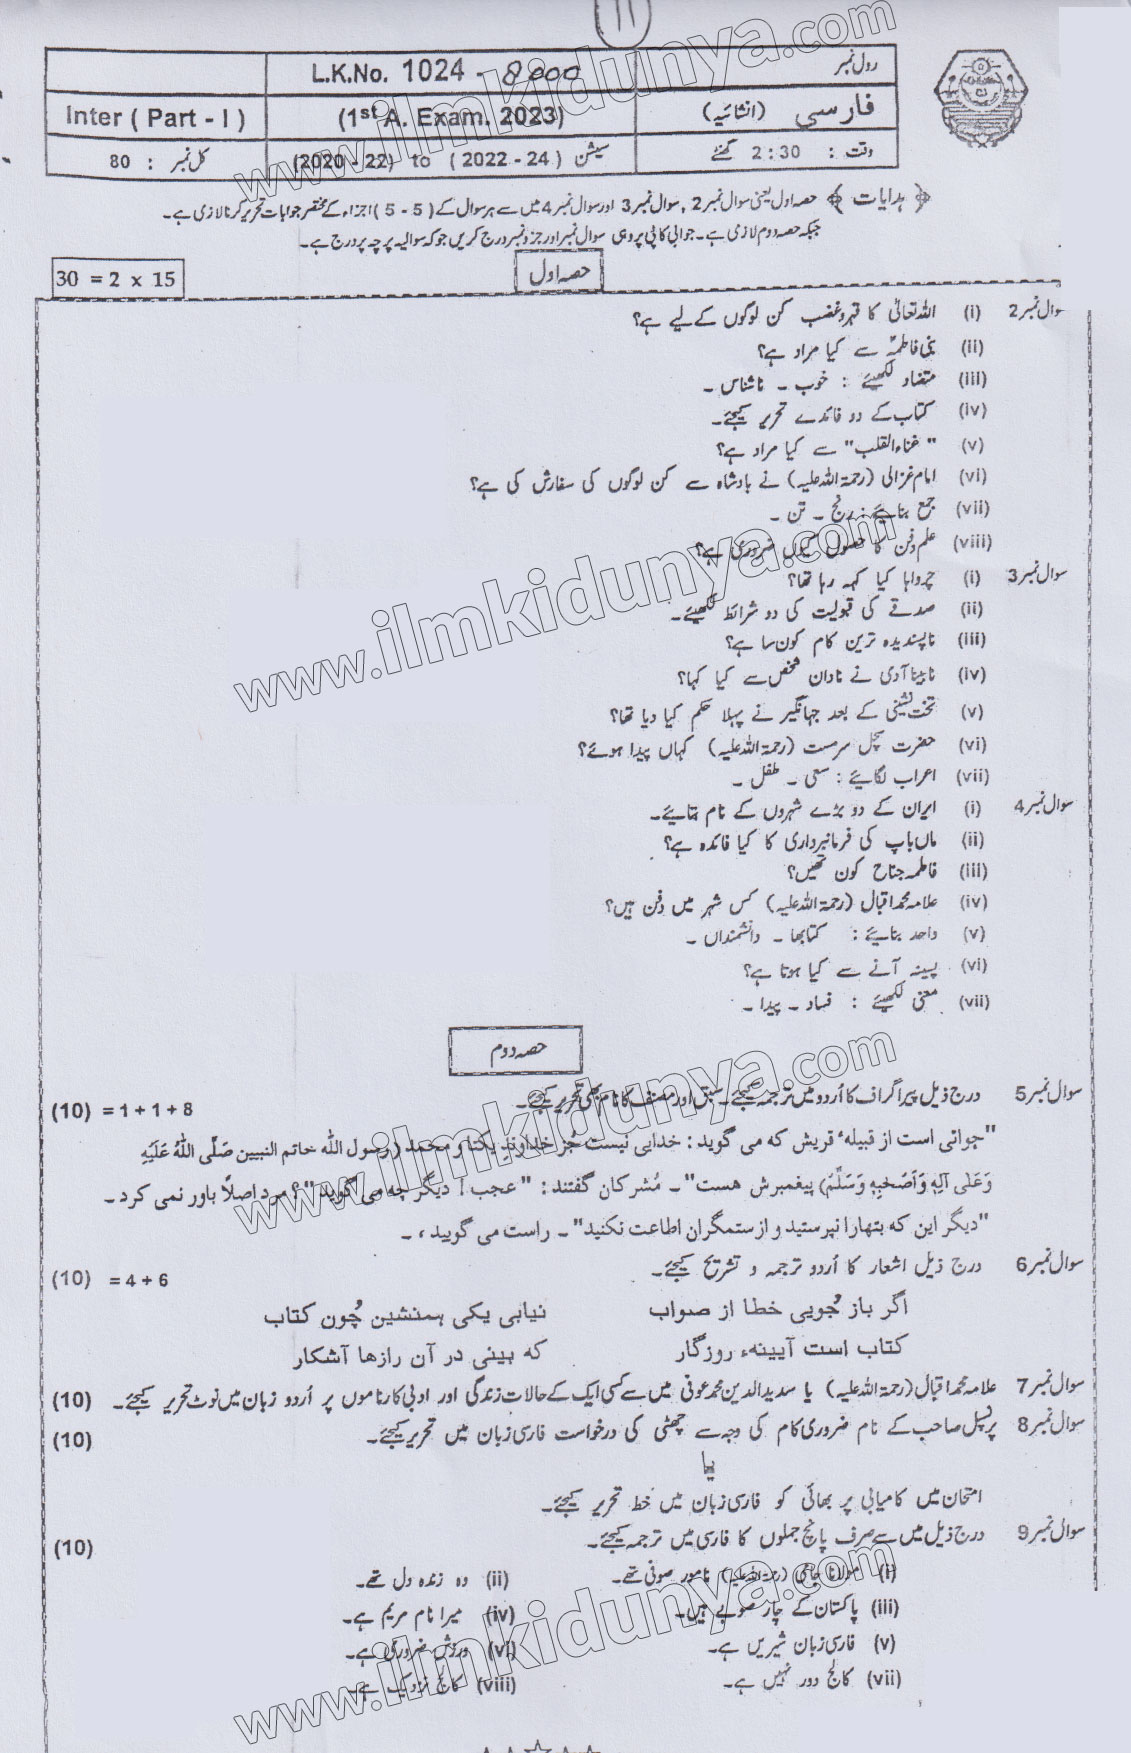 11
رول نمبر L.K.No. 1024 - 8000
فارسی (انشائیہ) (1st A. Exam. 2023) Inter ( Part - I )
وقت : 2:30 گھنٹے سیشن (2020 - 22) to ( 2022 - 24 ) کل نمبر : 80
﴿ ہدایات ﴾ حصہ اول یعنی سوال نمبر 2 , سوال نمبر 3 اور سوال نمبر 4 میں سے ہر سوال کے ( 5 - 5 ) اجزاء کے مختصر جوابات تحریر کرنا لازمی ہے۔
جبکہ حصہ دوم لازمی ہے۔ جوابی کاپی پر وہی سوال نمبر اور جزو نمبر درج کریں جو کہ سوالیہ پرچہ پر درج ہے۔
حصہ اول 30 = 2 x 15
سوال نمبر 2 (i) اللہ تعالیٰ کا قہر و غضب کن لوگوں کے لیے ہے؟
(ii) بنی فاطمہؓ سے کیا مراد ہے؟
(iii) متضاد لکھیئے : خوب ۔ ناشناس ۔
(iv) کتاب کے دو فائدے تحریر کیجئے۔
(v) " غناء القلب" سے کیا مراد ہے؟
(vi) امام غزالی (رحمۃ اللہ علیہ) نے بادشاہ سے کن لوگوں کی سفارش کی ہے؟
(vii) جمع بنائیے : رنج ۔ تن ۔
(viii) علم و فن کا حصول کیوں ضروری ہے؟
سوال نمبر 3 (i) چرواہا کیا کہہ رہا تھا؟
(ii) صدقے کی قبولیت کی دو شرائط لکھیئے۔
(iii) ناپسندیدہ ترین کام کون سا ہے؟
(iv) نابینا آدمی نے نادان شخص سے کیا کہا؟
(v) تخت نشینی کے بعد جہانگیر نے پہلا حکم کیا دیا تھا؟
(vi) حضرت سچل سرمست (رحمۃ اللہ علیہ) کہاں پیدا ہوئے؟
(vii) اعراب لگائیے : سعی ۔ طفل ۔
سوال نمبر 4 (i) ایران کے دو بڑے شہروں کے نام بتائیے۔
(ii) ماں باپ کی فرمانبرداری کا کیا فائدہ ہے؟
(iii) فاطمہ جناح کون تھیں؟
(iv) علامہ محمد اقبال (رحمۃ اللہ علیہ) کس شہر میں دفن ہیں؟
(v) واحد بنائیے : کتابها ۔ دانشمنداں ۔
(vi) پسینہ آنے سے کیا ہوتا ہے؟
(vii) معنی لکھیئے : فساد ۔ پیدا ۔
حصہ دوم
سوال نمبر 5 درج ذیل پیراگراف کا اُردو میں ترجمہ کیجئے۔ سبق اور مصنف کا نام بھی تحریر کیجئے۔ (10) = 1 + 1 + 8
"جوانی است از قبیلهٔ قریش که می گوید : خدایی نیست جُز خداوندِ یکتا و محمد (رسول اللہ خاتم النبیین صَلَّی اللہُ عَلَیْهِ
وَعَلٰی آلِهٖ وَاَصْحٰبِهٖ وَسَلَّم) پیغمبرش هست" ۔ مُشرکان گفتند : " عجب ! دیگر چه می گوید" ؟ مرد اصلاً باور نمی کرد ۔
"دیگر این که بتهارا نپرستید و از ستمگران اطاعت نکنید" ۔ راست می گویید ، ۔
سوال نمبر 6 درج ذیل اشعار کا اُردو ترجمہ و تشریح کیجئے۔ (10) = 4 + 6
اگر باز جُویی خطا از صواب نیابی یکی همنشین چُون کتاب
کتاب است آیینهء روزگار که بینی در آن رازها آشکار
سوال نمبر 7 علامہ محمد اقبال (رحمۃ اللہ علیہ) یا سدید الدین محمد عوفی میں سے کسی ایک کے حالات زندگی اور ادبی کارناموں پر اُردو زبان میں نوٹ تحریر کیجئے۔ (10)
سوال نمبر 8 پرنسپل صاحب کے نام ضروری کام کی وجہ سے چھٹی کی درخواست فارسی زبان میں تحریر کیجئے۔ (10)
یا
امتحان میں کامیابی پر بھائی کو فارسی زبان میں خط تحریر کیجئے۔
سوال نمبر 9 درج ذیل میں سے صرف پانچ جملوں کا فارسی میں ترجمہ کیجئے۔ (10)
(i) مولانا جامی (رحمۃ اللہ علیہ) نامور صوفی تھے۔ (ii) وہ زندہ دل تھے۔
(iii) پاکستان کے چار صوبے ہیں۔ (iv) میرا نام مریم ہے۔
(v) فارسی زبان شیریں ہے۔ (vi) ورزش ضروری ہے۔
(vii) کالج دور نہیں ہے۔ (viii) کالج نزدیک ہے۔
www.ilmkidunya.com
www.ilmkidunya.com
www.ilmkidunya.com
www.ilmkidunya.com